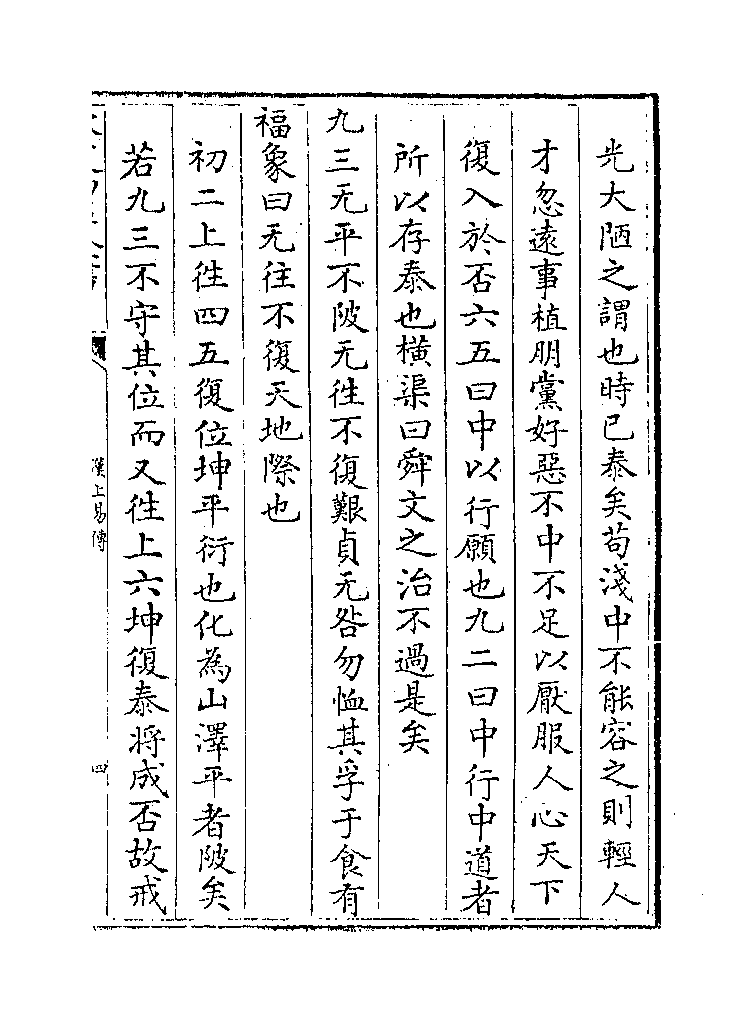 光大陋之謂也時已泰矣苟淺中不能容之則輕人
才忽遠事植朋黨好惡不中不足以厭服人心天下
復入於否六五曰中以行願也九二曰中行中道者
所以存泰也橫渠曰舜文之治不過是矣
九三无平不陂无往不復艱貞无咎勿恤其孚于食有
福象曰无往不復天地際也
初二上往四五復位坤平衍也化為山澤平者陂矣
若九三不守其位而又往上六坤復泰將成否故戒
漢上易傳
四